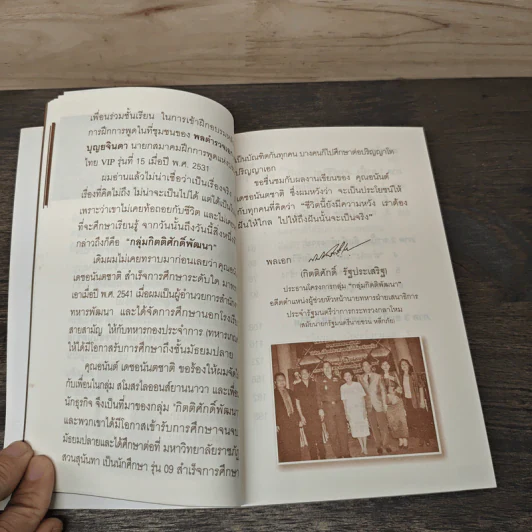 เพื่อนร่วมชั้นเรียน ในการเข้าฝึกอบรมหลัก
การฝึกการพูดในที่ชุมชนของ พลตำรวจเอก
บุญยจินดา นายกสมาคมฝึกการพูดแห่ง
ไทย VIP รุ่นที่ 15 เมื่อปี พ.ศ. 2531
ผมอ่านแล้วไม่น่าเชื่อว่าเป็นเรื่องจริง
เรื่องที่คิดไม่ถึง ไม่น่าจะเป็นไปได้ แต่ได้เป็น
เพราะว่าเขาไม่เคยท้อถอยกับชีวิต และไม่เคย
ที่จะศึกษาเรียนรู้ จากวันนั้นถึงวันนี้สิ่งหนึ่ง
กล่าวถึงก็คือ "กลุ่มกิตติศักดิ์พัฒนา"
เดิมผมไม่เคยทราบมาก่อนเลยว่า คุณอนันต์
เดชอนันตชาติ สำเร็จการศึกษาระดับใด มาทราบ
เอาเมื่อปี พ.ศ. 2541 เมื่อผมเป็นผู้อำนวยการสำนัก
ทหารพัฒนา และได้จัดการศึกษานอกโรงเรียน
สายสามัญ ให้กับทหารกองประจำการ (ทหารเกณฑ์)
ให้ได้มีโอกาสรับการศึกษาถึงชั้นมัธยมปลาย
คุณอนันต์ เดชอนันตชาติ ขอร้องให้ผมจัด
กับเพื่อนในกลุ่ม สโมสรไลออนส์ยานนาวา และเพื่อน
นักธุรกิจ จึงเป็นที่มาของกลุ่ม "กิตติศักดิ์พัฒนา"
และพวกเขาได้มีโอกาสเข้ารับการศึกษาจนจบ
มัธยมปลายและได้ศึกษาต่อที่ มหาวิทยาลัยราชภัฏ
สวนสุนันทา เป็นนักศึกษา รุ่น 09 สำเร็จการศึกษา
เป็นบัณฑิตกันทุกคน บางคนก็ไปศึกษาต่อปริญญาโท
ปริญญาเอก
ขอชื่นชมกับผลงานเขียนของ คุณอนันต์
เดชอนันตชาติ ซึ่งผมหวังว่า จะเป็นประโยชน์ให้
กับทุกคนที่คิดว่า "ชีวิตนี้ยังมีความหวัง เราต้อง
ฝันให้ไกล ไปให้ถึงฝันนั้นจะเป็นจริง"
พลเอก
(กิตติศักดิ์ รัฐประเสริฐ)
ประธานโครงการกลุ่ม "กลุ่มกิตติศักดิ์พัฒนา"
อดีตตำแหน่งผู้ช่วยหัวหน้านายทหารฝ่ายเสนาธิการ
ประจำรัฐมนตรีว่าการกระทรวงกลาโหม
(สมัยนายกรัฐมนตรีนายชวน หลีกภัย)